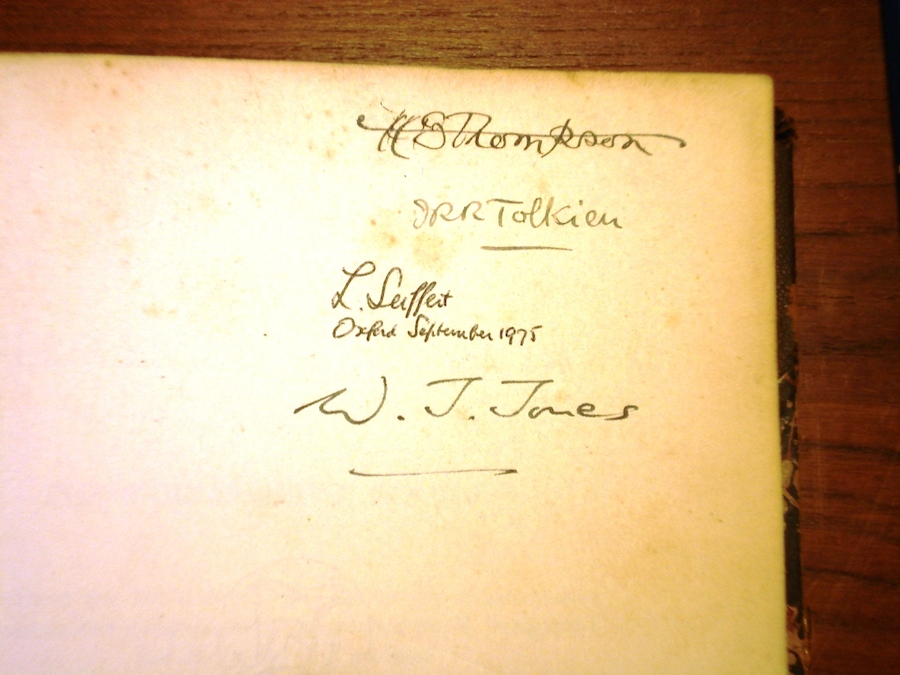 H E Thompson
JRR Tolkien
L. Seiffert
Oxford September 1975
W. J. Jones